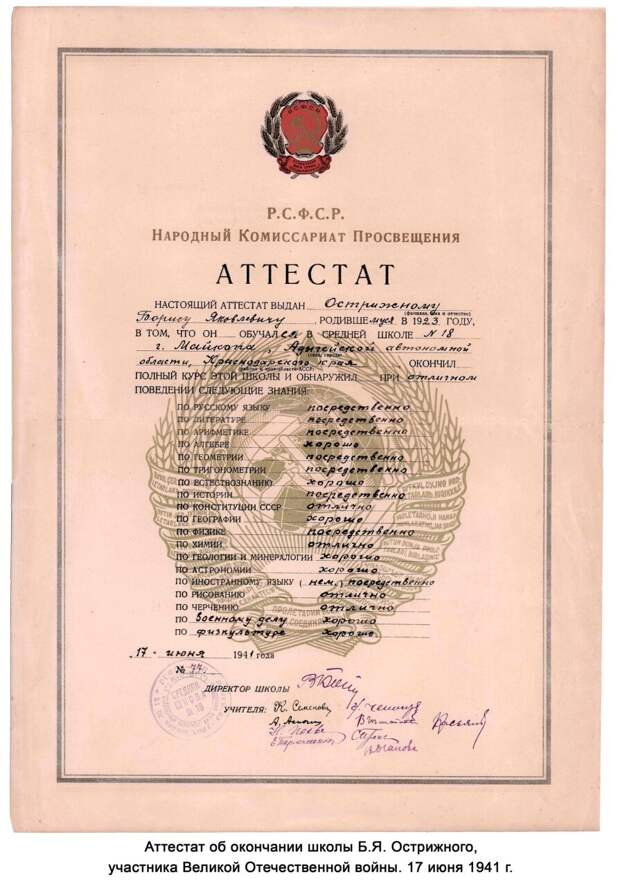 Р.С.Ф.С.Р.
НАРОДНЫЙ КОМИССАРИАТ ПРОСВЕЩЕНИЯ
АТТЕСТАТ
НАСТОЯЩИЙ АТТЕСТАТ ВЫДАН Острижному
(фамилия, имя и отчество)
Борису Яковлевичу, РОДИВШЕМУСЯ В 1923 ГОДУ,
В ТОМ, ЧТО ОН ОБУЧАЛСЯ В СРЕДНЕЙ ШКОЛЕ N 18
г. Майкопа, Адыгейской автономной
области, Краснодарского края ОКОНЧИЛ
ПОЛНЫЙ КУРС ЭТОЙ ШКОЛЫ И ОБНАРУЖИЛ ПРИ отличном
ПОВЕДЕНИИ СЛЕДУЮЩИЕ ЗНАНИЯ:
ПО РУССКОМУ ЯЗЫКУ посредственно
ПО ЛИТЕРАТУРЕ посредственно
ПО АРИФМЕТИКЕ посредственно
ПО АЛГЕБРЕ хорошо
ПО ГЕОМЕТРИИ посредственно
ПО ТРИГОНОМЕТРИИ посредственно
ПО ЕСТЕСТВОЗНАНИЮ хорошо
ПО ИСТОРИИ посредственно
ПО КОНСТИТУЦИИ СССР отлично
ПО ГЕОГРАФИИ хорошо
ПО ФИЗИКЕ посредственно
ПО ХИМИИ отлично
ПО ГЕОЛОГИИ И МИНЕРАЛОГИИ хорошо
ПО АСТРОНОМИИ хорошо
ПО ИНОСТРАННОМУ ЯЗЫКУ (нем.) посредственно
ПО РИСОВАНИЮ отлично
ПО ЧЕРЧЕНИЮ отлично
ПО военному делу хорошо
ПО физкультуре хорошо
17 - июня 1941 года
№ 77
ДИРЕКТОР ШКОЛЫ
УЧИТЕЛЯ:
Аттестат об окончании школы Б.Я. Острижного,
участника Великой Отечественной войны. 17 июня 1941 г.